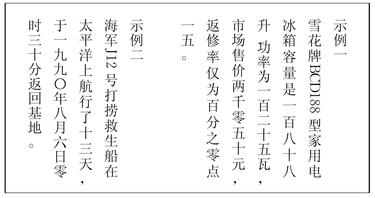 示例一
雪花牌BCD188型家用电
冰箱容量是一百八十八
升 功率为一百二十五瓦，
市场售价两千零五十元，
返修率仅为百分之零点
一五。
示例二
海军J12号打捞救生船在
太平洋上航行了十三天，
于一九九〇年八月六日零
时三十分返回基地。